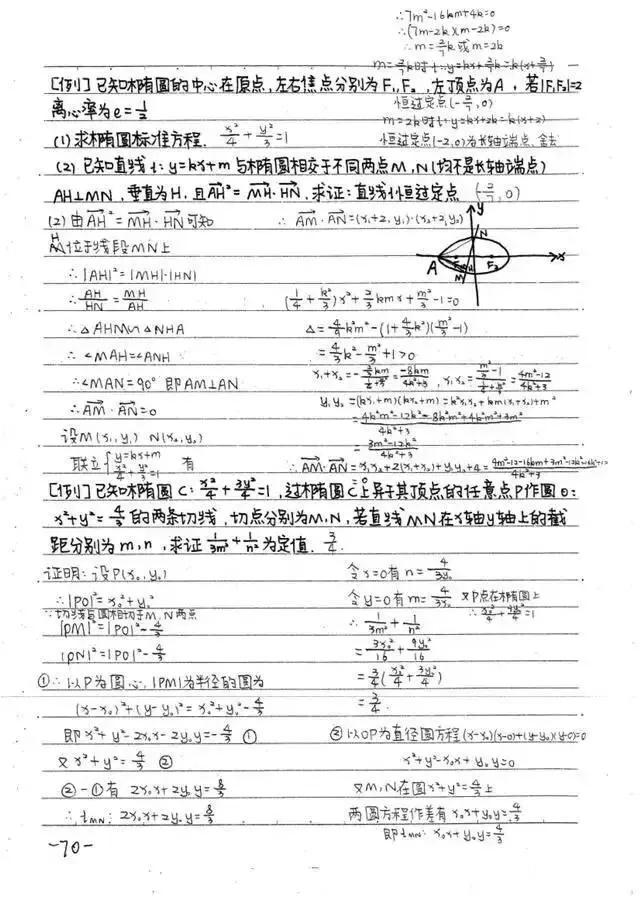 ∴7m²-16km+4k²=0
∴(7m-2k)(m-2k)=0
∴m=2/7k或m=2k
m=2/7k时 l:y=kx+2/7k=k(x+2/7)
恒过定点(-2/7,0)
m=2k时 l:y=kx+2k=k(x+2)
恒过定点(-2,0)为长轴端点,舍去
[例]已知椭圆的中心在原点,左右焦点分别为F₁,F₂,左顶点为A,若|F₁F₂|=2
离心率为e=1/2
(1)求椭圆标准方程. x²/4+y²/3=1
(2)已知直线l:y=kx+m与椭圆相交于不同两点M,N(均不是长轴端点)
AH⊥MN,垂直为H,且AH²=MH·HN,求证:直线l恒过定点(-2/7,0)
(2)由AH²=MH·HN可知
H位于线段MN上
∴|AH|²=|MH|·|HN|
∴AH/HN=MH/AH
∴△AHM∽△NHA
∴∠MAH=∠ANH
∴∠MAN=90° 即AM⊥AN
∴AM·AN=0
设M(x₁,y₁) N(x₂,y₂)
联立{y=kx+m x²/4+y²/3=1 有
∴AM·AN=(x₁+2,y₁)·(x₂+2,y₂)
y
N
A F₁ H F₂ x
M
(1/4+k²/3)x²+2/3kmx+m²/3-1=0
△=4/9k²m²-(1+4/3k²)(m²/3-1)
=4/3k²-m²/3+1>0
x₁+x₂=-(2/3km)/(1/4+k²/3)=-8km/(4k²+3), x₁x₂=(m²/3-1)/(1/4+k²/3)=(4m²-12)/(4k²+3)
y₁y₂=(kx₁+m)(kx₂+m)=k²x₁x₂+km(x₁+x₂)+m²
=(4k²m²-12k²-8k²m²+4k²m²+3m²)/(4k²+3)
=(3m²-12k²)/(4k²+3)
∴AM·AN=x₁x₂+2(x₁+x₂)+y₁y₂+4=(4m²-12-16km+3m²-12k²+16k²+12)/(4k²+3)
[例]已知椭圆C:x²/4+3y²/4=1,过椭圆C上异于其顶点的任意点P作圆O:
x²+y²=4/3的两条切线,切点分别为M,N,若直线MN在x轴y轴上的截
距分别为m,n,求证1/3m²+1/n²为定值.3/4.
证明:设P(x₀,y₀)
∴|PO|²=x₀²+y₀²
∵切线与圆相切于M,N两点
|PM|²=|PO|²-4/3
|PN|²=|PO|²-4/3
①∴以P为圆心,|PM|为半径的圆为
(x-x₀)²+(y-y₀)²=x₀²+y₀²-4/3
即x²+y²-2x₀x-2y₀y=-4/3 ①
又x²+y²=4/3 ②
②-①有 2x₀x+2y₀y=8/3
∴l_MN:2x₀x+2y₀y=8/3
令x=0有n=4/3y₀
令y=0有m=4/3x₀ 又P点在椭圆上
∴x₀²/4+3y₀²/4=1
∴1/3m²+1/n²
=3x₀²/16+9y₀²/16
=3/4(x₀²/4+3y₀²/4)
=3/4.
②以OP为直径圆方程(x-x₀)(x-0)+(y-y₀)(y-0)=0
x²+y²-x₀x+y₀y=0
又M,N在圆x²+y²=4/3上
两圆方程作差有x₀x+y₀y=4/3
即l_MN:x₀x+y₀y=4/3
-70-